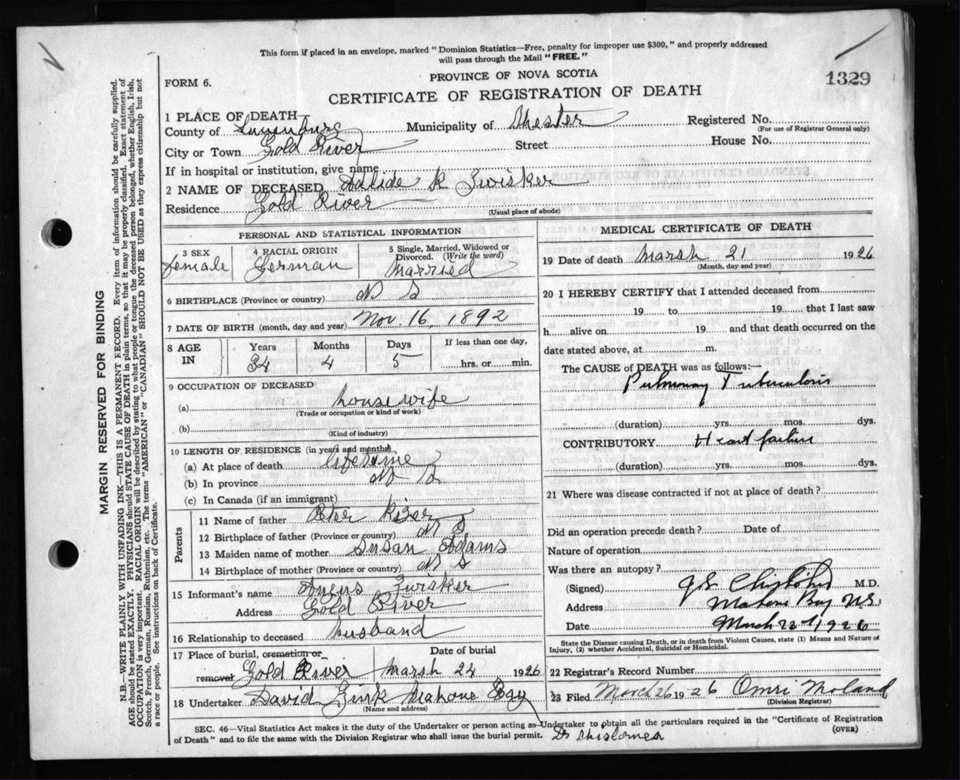 This form if placed in an envelope, marked "Dominion Statistics—Free, penalty for improper use $300," and properly addressed
will pass through the Mail "FREE."
FORM 6.
PROVINCE OF NOVA SCOTIA
1329
CERTIFICATE OF REGISTRATION OF DEATH
1 PLACE OF DEATH
County of Lunenburg Municipality of Chester Registered No.
(For use of Registrar General only)
City or Town Gold River Street House No.
If in hospital or institution, give name
2 NAME OF DECEASED K Zwisker
Residence Gold River
(Usual place of abode)
PERSONAL AND STATISTICAL INFORMATION
3 SEX 4 RACIAL ORIGIN 5 Single, Married, Widowed or Divorced. (Write the word)
Female German Married
6 BIRTHPLACE (Province or country) N S
7 DATE OF BIRTH (month, day and year) Nov. 16, 1892
8 AGE IN Years Months Days If less than one day,
4 5 hrs. or min.
9 OCCUPATION OF DECEASED
(a) housewife
(Trade or occupation or kind of work)
(b)
(Kind of industry)
10 LENGTH OF RESIDENCE (in years and months)
(a) At place of death lifetime
(b) In province N S
(c) In Canada (if an immigrant)
Parents
11 Name of father Kizer
12 Birthplace of father (Province or country) N S
13 Maiden name of mother Susan Adams
14 Birthplace of mother (Province or country) N S
15 Informant's name Angus Zwisker
Address Gold River
16 Relationship to deceased husband
17 Place of burial, cremation or removal Gold River
Date of burial Marsh 24 1926
18 Undertaker David Zink Mahone Bay
(Name and address)
MEDICAL CERTIFICATE OF DEATH
19 Date of death Marsh 21 1926
(Month, day and year)
20 I HEREBY CERTIFY that I attended deceased from
19 to 19 that I last saw
h alive on 19 and that death occurred on the
date stated above, at m.
The CAUSE of DEATH was as follows:—
Pulmonary Tuberculosis
(duration) yrs. mos. dys.
CONTRIBUTORY Heart failure
(duration) yrs. mos. dys.
21 Where was disease contracted if not at place of death?
Did an operation precede death? Date of
Nature of operation
Was there an autopsy?
(Signed) M.D.
Address Mahone Bay N.S.
Date March 22nd 1926
State the Disease causing Death, or in death from Violent Causes, state (1) Means and Nature of Injury, (2) whether Accidental, Suicidal or Homicidal.
22 Registrar's Record Number
23 Filed March 26 1926 Omri
(Division Registrar)
SEC. 46—Vital Statistics Act makes it the duty of the Undertaker or person acting as Undertaker to obtain all the particulars required in the "Certificate of Registration
of Death" and to file the same with the Division Registrar who shall issue the burial permit.
(OVER)
MARGIN RESERVED FOR BINDING
N.B.—WRITE PLAINLY WITH UNFADING INK—THIS IS A PERMANENT RECORD. Every item of information should be carefully supplied.
AGE should be stated EXACTLY. PHYSICIANS should STATE CAUSE OF DEATH in plain terms, so that it may be properly classified. Exact statement of
OCCUPATION is very important. RACIAL ORIGIN will be described by stating to what people or tongue the deceased person belonged, whether English, Irish,
Scotch, French, German, Russian, Ruthenian, etc. The terms "AMERICAN" or "CANADIAN" SHOULD NOT BE USED as they express citizenship but not
a race or people. See instructions on back of Certificate.